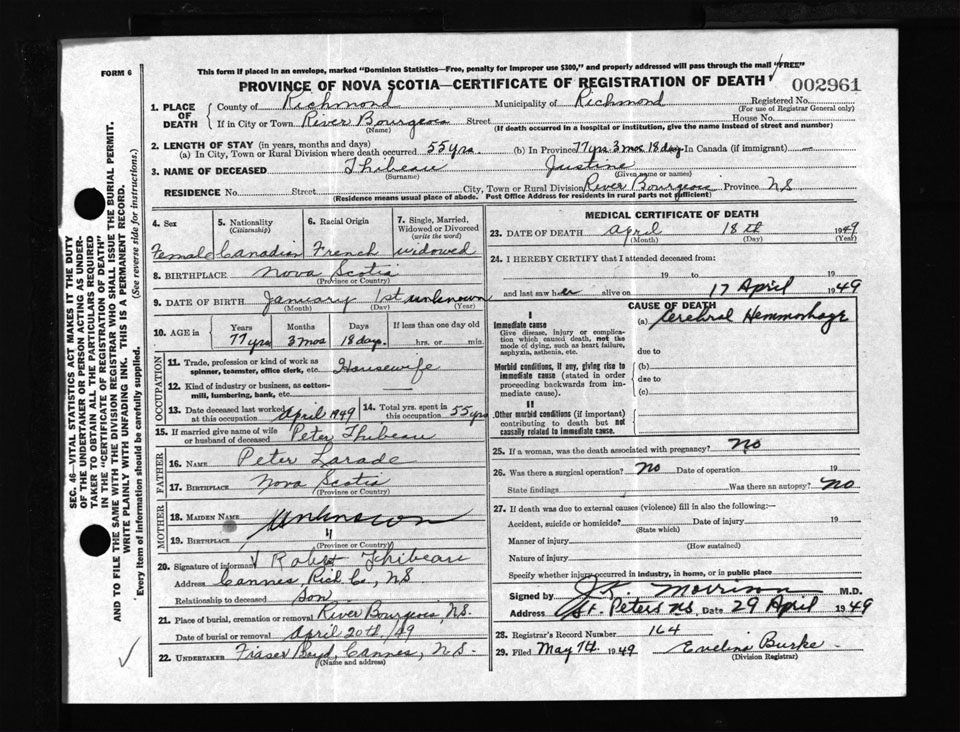 FORM 6
This form if placed in an envelope, marked "Dominion Statistics—Free, penalty for improper use $300," and properly addressed will pass through the mail "FREE"
PROVINCE OF NOVA SCOTIA—CERTIFICATE OF REGISTRATION OF DEATH
002961
1. PLACE OF DEATH County of Richmond Municipality of Richmond Registered No.
(For use of Registrar General only)
If in City or Town River Bourgeois Street House No.
(Name) (If death occurred in a hospital or institution, give the name instead of street and number)
2. LENGTH OF STAY (in years, months and days)
(a) In City, Town or Rural Division where death occurred 55 yrs. (b) In Province 77 yrs 3 mos 18 day In Canada (if immigrant) —
3. NAME OF DECEASED Thibeau Justine
(Surname) (Given name or names)
RESIDENCE No. Street City, Town or Rural Division River Bourgeois Province NS
(Residence means usual place of abode. Post Office Address for residents in rural parts not sufficient)
4. Sex 5. Nationality (Citizenship) 6. Racial Origin 7. Single, Married, Widowed or Divorced (write the word)
Female Canadian French widowed
8. BIRTHPLACE Nova Scotia
(Province or Country)
9. DATE OF BIRTH January 1st unknown
(Month) (Day) (Year)
10. AGE in Years Months Days If less than one day old
77 yrs 3 mos 18 days hrs. or min.
OCCUPATION
11. Trade, profession or kind of work as spinner, teamster, office clerk, etc. Housewife
12. Kind of industry or business, as cotton-mill, lumbering, bank, etc.
13. Date deceased last worked at this occupation April 1949 14. Total yrs. spent in this occupation 55 yrs
15. If married give name of wife or husband of deceased Peter Thibeau
FATHER
16. NAME Peter Larade
17. BIRTHPLACE Nova Scotia
(Province or Country)
MOTHER
18. MAIDEN NAME Unknown
19. BIRTHPLACE "
(Province or Country)
20. Signature of informant Robert Thibeau
Address Cannes, Rich Co., N.S
Relationship to deceased Son
21. Place of burial, cremation or removal River Bourgeois, N.S.
Date of burial or removal April 20th/49
22. UNDERTAKER Fraser Boyd, Cannes, N.S.
(Name and address)
MEDICAL CERTIFICATE OF DEATH
23. DATE OF DEATH April 18th 1949
(Month) (Day) (Year)
24. I HEREBY CERTIFY that I attended deceased from:
19 to 19
and last saw her alive on 17 April 1949
CAUSE OF DEATH
I
Immediate cause (a) Cerebral Hemmorhage
Give disease, injury or complication which caused death, not the mode of dying, such as heart failure, asphyxia, asthenia, etc.
due to
Morbid conditions, if any, giving rise to immediate cause (stated in order proceeding backwards from immediate cause).
(b)
due to
(c)
II
Other morbid conditions (if important) contributing to death but not causally related to immediate cause.
25. If a woman, was the death associated with pregnancy? No
26. Was there a surgical operation? No Date of operation 19
State findings Was there an autopsy? No
27. If death was due to external causes (violence) fill in also the following:—
Accident, suicide or homicide? Date of injury 19
(State which)
Manner of injury
(How sustained)
Nature of injury
Specify whether injury occurred in industry, in home, or in public place
Signed by Morrison M.D.
Address St. Peters N.S. Date 29 April 1949
28. Registrar's Record Number 164
29. Filed May 14. 1949 Evelina Burke
(Division Registrar)
SEC. 46—VITAL STATISTICS ACT MAKES IT THE DUTY
OF THE UNDERTAKER OR PERSON ACTING AS UNDER-
TAKER TO OBTAIN ALL THE PARTICULARS REQUIRED
IN THE "CERTIFICATE OF REGISTRATION OF DEATH"
AND TO FILE THE SAME WITH THE DIVISION REGISTRAR WHO SHALL ISSUE THE BURIAL PERMIT.
WRITE PLAINLY WITH UNFADING INK. THIS IS A PERMANENT RECORD.
Every item of information should be carefully supplied. (See reverse side for instructions.)